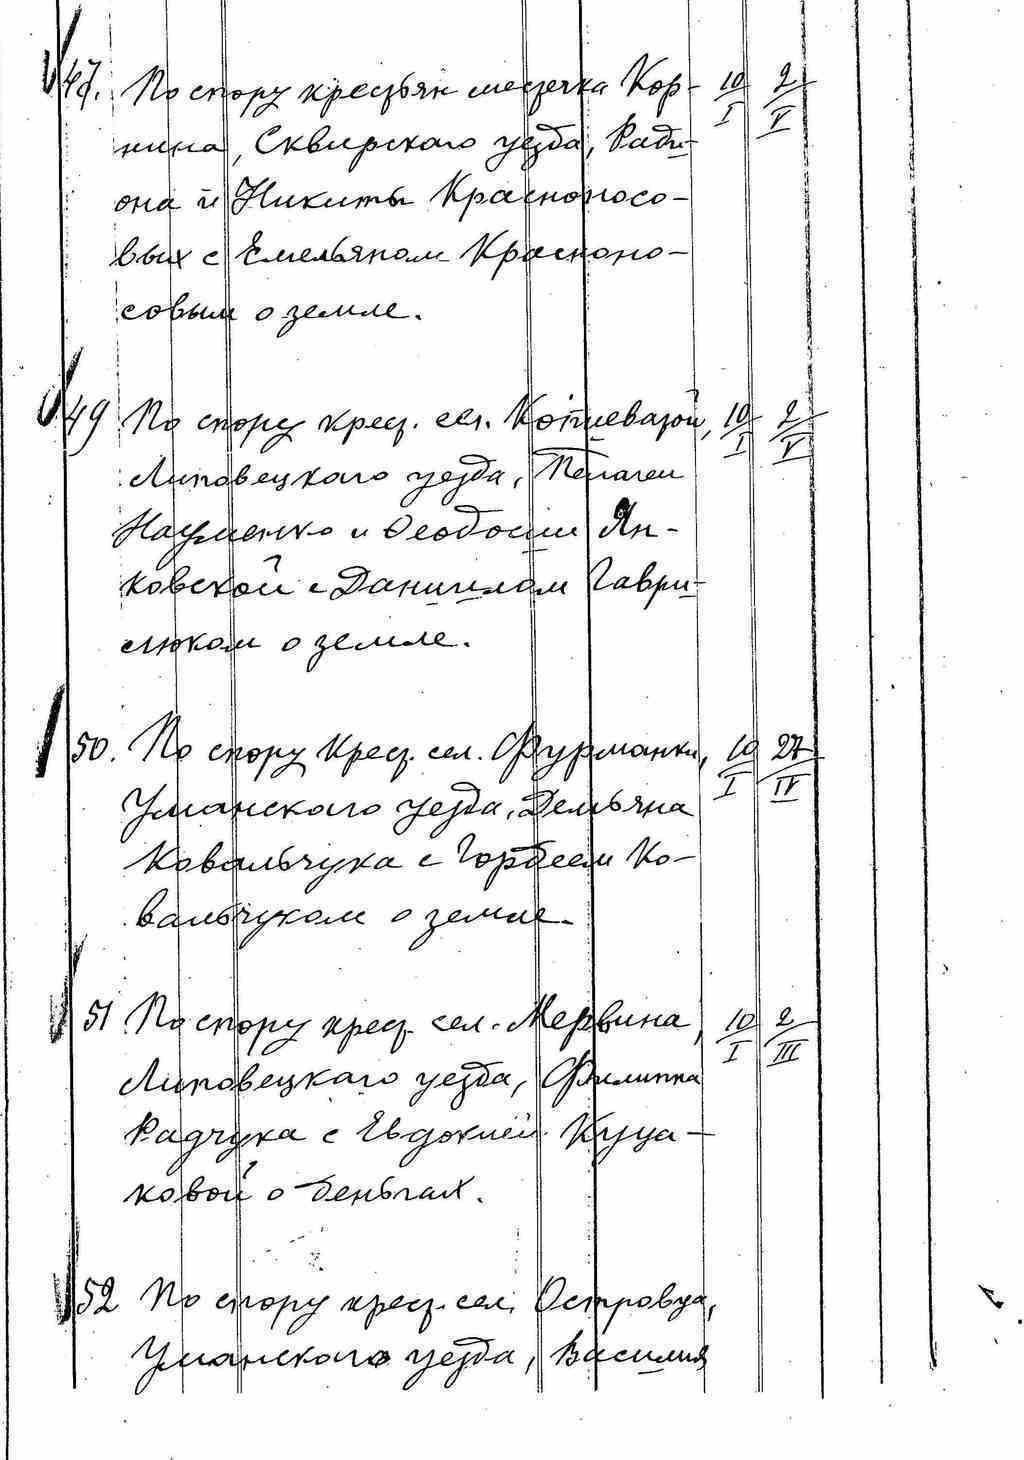 47. По спору крестьян местечка Кор- 10/I 2/V
нина, Сквирскаго уезда, Ради-
она и Никиты Красноносо-
вых с Емельяном Красноно-
совым о земле.
49 По спору крест. сел. Копиеватой, 10/I 2/V
Липовецкаго уезда, Пелагеи
Науменко и Феодосии Ян-
ковской с Даниилом Гаври-
люком о земле.
50. По спору крест. сел. Фурманки, 10/I 27/IV
Уманскаго уезда, Демьяна
Ковальчука с Гордеем Ко-
вальчуком о земле.
51 По спору крест. сел. Мервина, 10/I 2/III
Липовецкаго уезда, Филиппа
Радчука с Евдокией Куца-
ковой о деньгах.
52 По спору крест. сел. Островца,
Уманскаго уезда, Василия